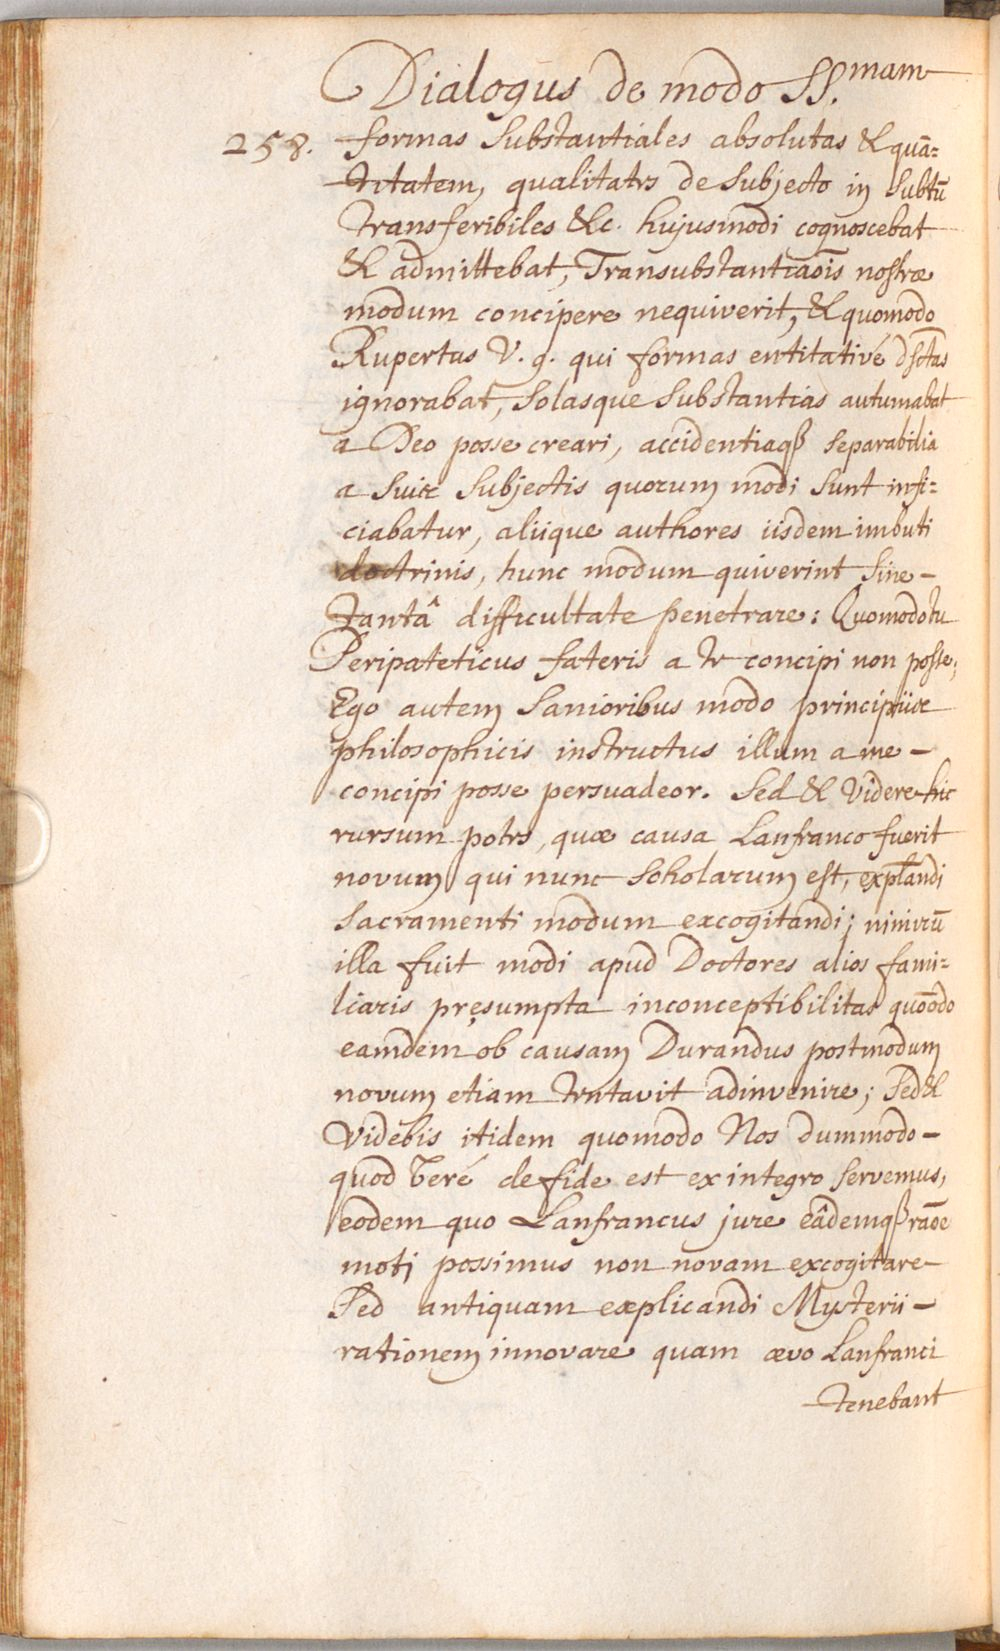 Dialogus de modo SS.mam
258. formas substantiales absolutas & quā=
titatem, qualitates de subjecto in subtū
transferibiles &c. hujusmodi cognoscebat
& admittebat, Transubstantiaōis nostræ
modum concipere nequiverit, & quomodo
Rupertus V. g. qui formas entitativé dsctas
ignorabat, solasque substantias autumabat
a Deo posse creari, accidentiaqȝ separabilia
a suis subjectis quorum modi sunt infi=
ciabatur, aliique authores iisdem imbuti
doctrinis, hunc modum quiverint sine-
tantâ difficultate penetrare: Quomodo tu
Peripateticus fateris a te concipi non posse;
Ego autem sanioribus modo principiis
philosophicis instructus illum a me-
concipi posse persuadeor. Sed & videre hic
rursum potes, quæ causa Lanfranco fuerit
novum qui nunc scholarum est, explandi
sacramenti modum excogitandi; nimirū
illa fuit modi apud Doctores alios fami=
liaris pręsumpta inconceptibilitas quōodo
eamdem ob causam Durandus postmodum
novum etiam tentavit adinvenire; Sed &
videbis itidem quomodo Nos dummodo-
quod veré de fide est ex integro servemus,
eodem quo Lanfrancus jure eâdemqȝ raōe
moti possimus non novam excogitare
Sed antiquam explicandi Mysterii-
rationem innovare quam ævo Lanfranci
tenebant